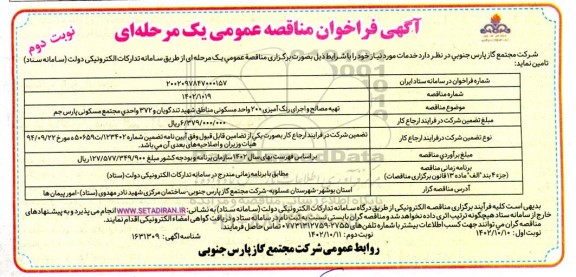 آگهی فراخوان مناقصه عمومی یک مرحله‌ای
نوبت دوم
شرکت مجتمع گاز پارس جنوبی در نظر دارد خدمات مورد نیاز خود را با شرایط ذیل بصورت برگزاری مناقصه عمومی یک مرحله‌ای از طریق سامانه تدارکات الکترونیکی دولت (سامانه ستاد) تامین نماید:
شماره فراخوان در سامانه ستاد ایران ۲۰۰۲۰۹۷۸۴۷۰۰۰۱۵۷
شماره مناقصه ۱۴۰۲/۱۰۱۹
موضوع مناقصه تهیه مصالح و اجرای رنگ آمیزی ۲۰۰ واحد مسکونی مناطق شهید تندگویان و ۳۷۲ واحدی مجتمع مسکونی پارس جم
مبلغ تضمین شرکت در فرایند ارجاع کار ۶/۳۷۹/۰۰۰/۰۰۰ ریال
نوع تضمین شرکت در فرایند ارجاع کار تضمین شرکت در فرایند ارجاع کار بصورت یکی از تضامین قابل قبول وفق آیین نامه تضمین شماره ۱۲۳۴۰۲/ت۵۰۶۵۹ه مورخ ۹۴/۰۹/۲۲ هیات وزیران و اصلاحیه‌های بعدی آن می باشد.
مبلغ برآوردی مناقصه براساس فهرست بهای سال ۱۴۰۲ سازمان برنامه و بودجه کشور مبلغ ۱۲۷/۵۷۷/۳۴۹/۹۰۰ ریال
برنامه زمانی مناقصه مطابق با برنامه زمانی مندرج در سامانه تدارکات الکترونیکی دولت (سامانه ستاد)
(جزء ۴ بند "الف" ماده ۱۳ قانون برگزاری مناقصات)
آدرس مناقصه گزار استان بوشهر-شهرستان عسلویه-شرکت مجتمع گاز پارس جنوبی-ساختمان مرکزی شهید نادر مهدوی (ستاد)-امور پیمان ها
بدیهی است کلیه فرآیند برگزاری مناقصه الکترونیکی از طریق درگاه سامانه تدارکات الکترونیکی دولت (سامانه ستاد) به نشانی: WWW.SETADIRAN.IR انجام می پذیرد و به پیشنهادهای
خارج از سامانه ستاد هیچگونه ترتیب اثری داده نخواهد شد و مناقصه گران بایستی نسبت به ثبت نام در سامانه ستاد و دریافت گواهی امضاء الکترونیکی اقدام نمایند.
مناقصه گران می توانند جهت کسب اطلاعات بیشتر با شماره تلفن های ۲۷۵۵-۰۷۷۳۱۳۱۲۷۵۹ تماس حاصل فرمایند.
نوبت اول: ۱۴۰۲/۱۰/۱۰ نوبت دوم: ۱۴۰۲/۱۰/۱۱ شناسه آگهی: ۱۶۳۱۳۰۹
روابط عمومی شرکت مجتمع گاز پارس جنوبی